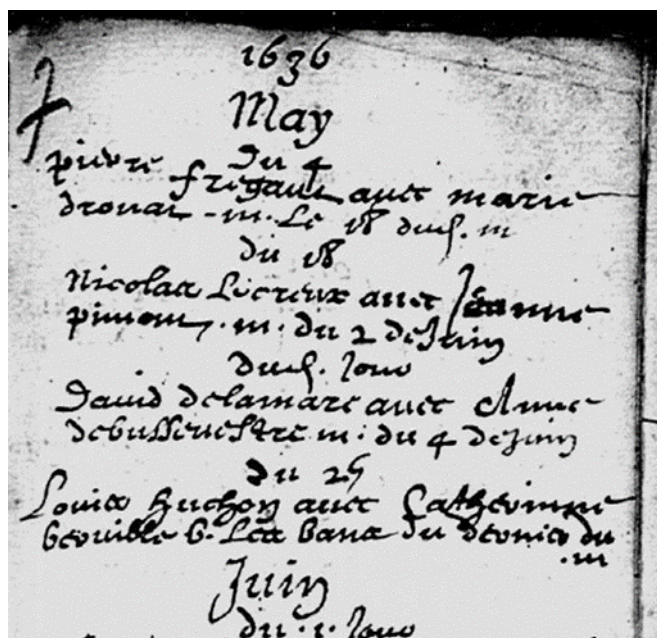 1636
May
Du 4
pierre fregault avec marie
drouat - m. Le 18 dud. m
du 18
Nicolas Lecreux avec Jeanne
pimont. m. du 2 de Juin
dud. Jour
David delamare avec Anne
debusseuestre m. du 4 de Juin
du 25
Louis huchon avec Catherinne
berville b. Les bans du dernier du
.m
Juin
du .1. Jour